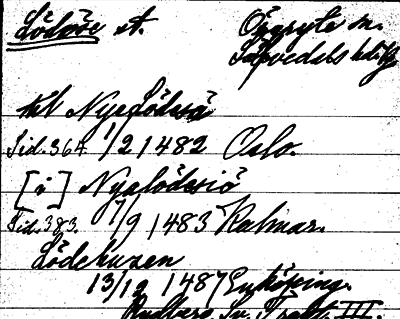 Lödöse st. Örgryte sn.
Sävedals hd. Vg
till Nyelödesä
Sid. 364 1/2 1482 Oslo.
[i] Nyalödesiö
Sid. 383. 7/9 1483 Kalmar.
Lödehuzen
13/12 1487 Enköping.
Rydberg, Sv. Trakt. III.